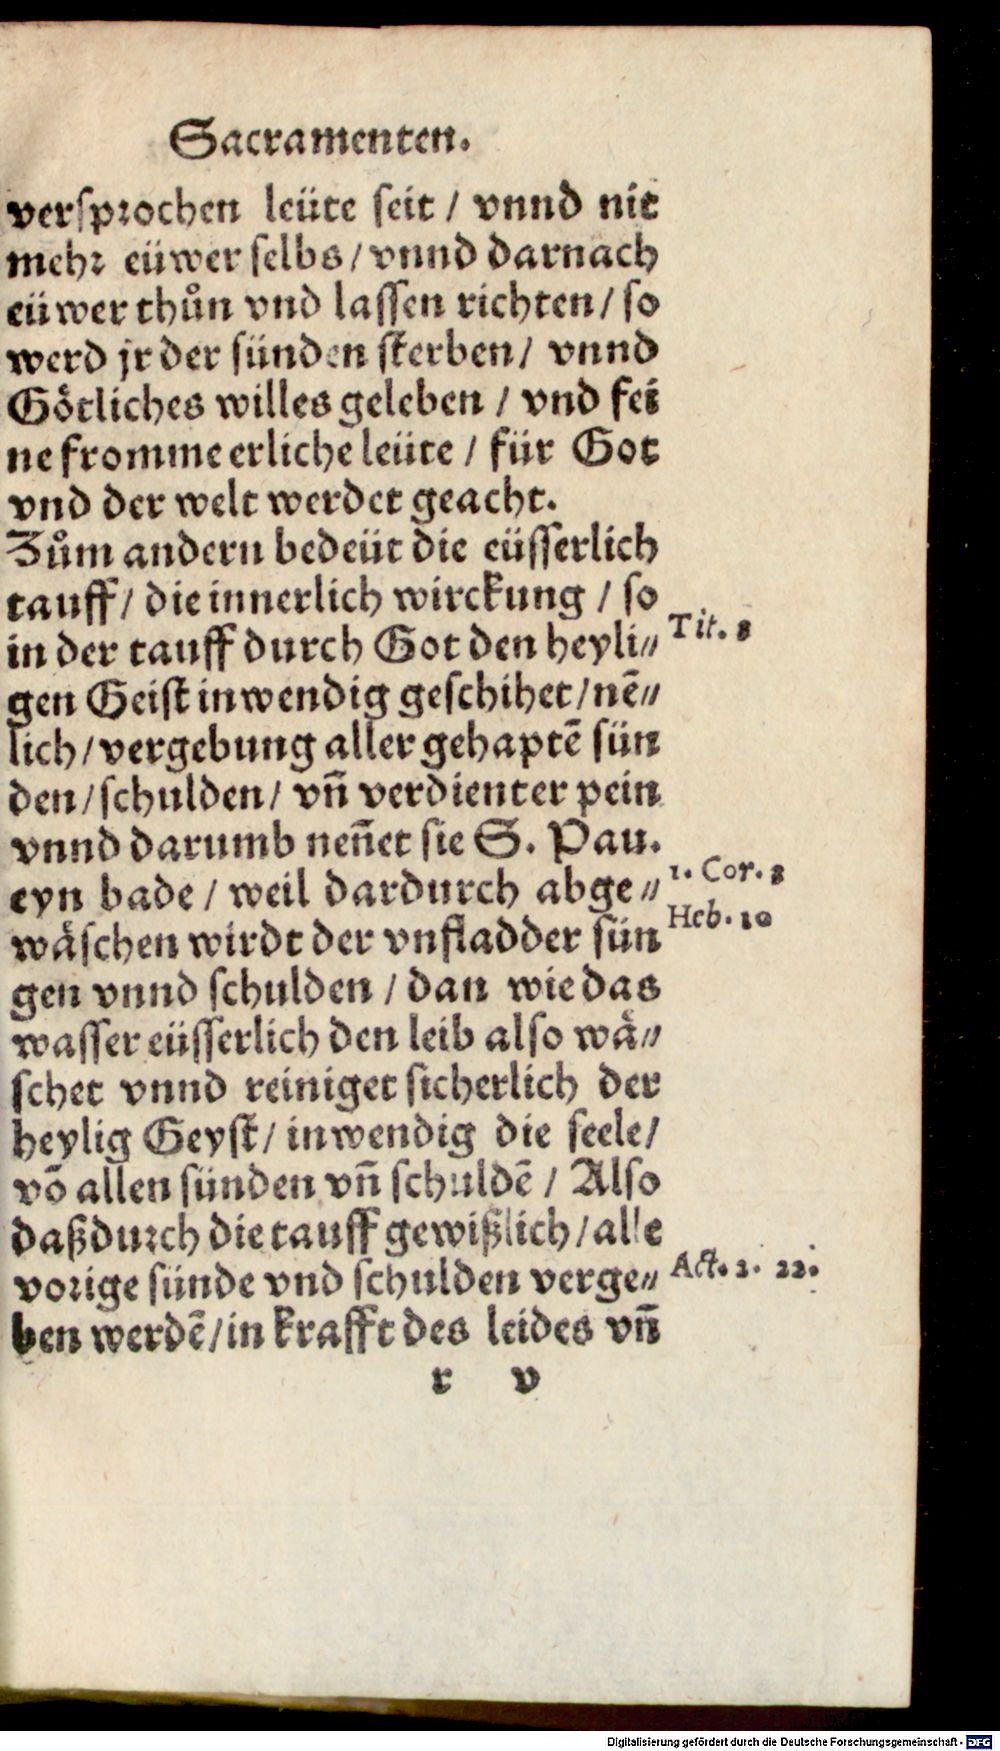 Sacramenten.
versprochen leüte seit / vnnd nit
mehr eüwer selbs / vnnd darnach
eüwer thůn vnd lassen richten / so
werd jr der sünden sterben / vnnd
Götliches willes geleben / vnd fei
ne fromme erliche leüte / für Got
vnd der welt werdet geacht.
Zům andern bedeüt die eüsserlich
tauff / die innerlich wirckung / so
in der tauff durch Got den heyli⸗
Tit. 3
gen Geist inwendig geschihet / nē⸗
lich / vergebung aller gehaptē sün
den / schulden / vñ verdienter pein
vnnd darumb neñet sie S. Pau.
eyn bade / weil dardurch abge⸗
1. Cor. 3
wäschen wirdt der vnfladder sün
Heb. 10
gen vnnd schulden / dan wie das
wasser eüsserlich den leib also wä⸗
schet vnnd reiniget sicherlich der
heylig Geyst / inwendig die seele /
vō allen sünden vñ schuldē / Also
daß durch die tauff gewißlich / alle
vorige sünde vnd schulden verge⸗
Act. 2. 22.
ben werdē / in krafft des leides vñ
r v
Digitalisierung gefördert durch die Deutsche Forschungsgemeinschaft - DFG